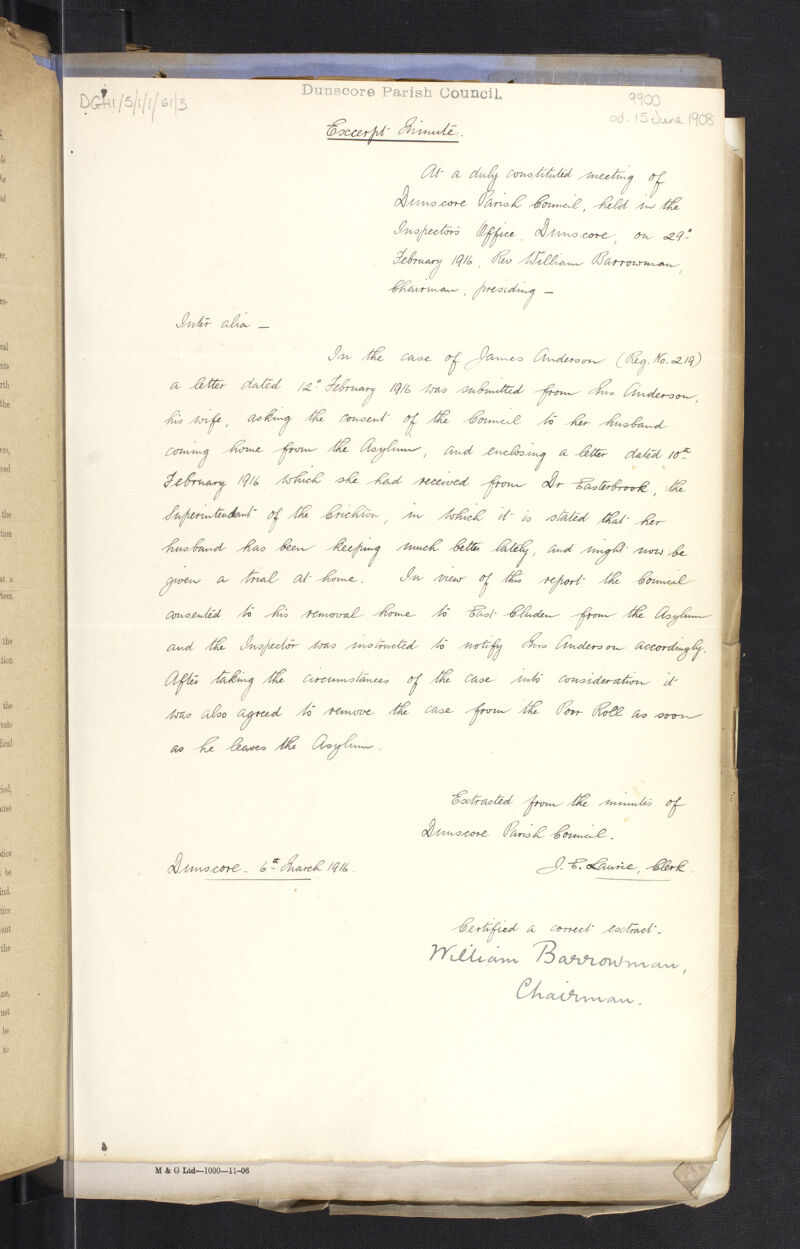 DGH1/5/1/1/61/3
Dunscore Parish Council.
9900
ad. 15 June 1908
Excerpt Minute.
At a duly constituted meeting of
Dunscore Parish Council, held in the
Inspector's Office, Dunscore, on 29th
February 1916, Rev William Barrowman,
Chairman, presiding —
Inter alia —
In the case of James Anderson (Reg. No. 219)
a letter dated 12th February 1916 was submitted from Mrs Anderson,
his wife, asking the consent of the Council to her husband
coming home from the Asylum, and enclosing a letter dated 10th
February 1916 which she had received from Dr Easterbrook, the
Superintendant of the Crichton, in which it is stated that her
husband has been keeping much better lately, and might now be
given a trial at home. In view of this report the Council
consented to his removal home to East Cluden from the Asylum
and the Inspector was instructed to notify Mrs Anderson accordingly.
After taking the circumstances of the case into consideration it
was also agreed to remove the case from the Poor Roll as soon
as he leaves the Asylum.
Extracted from the minutes of
Dunscore Parish Council.
Dunscore. 6th March 1916.
J. E. Laurie, Clerk.
Certified a correct extract.
William Barrowman,
Chairman.
M & G Ltd—1000—11-06